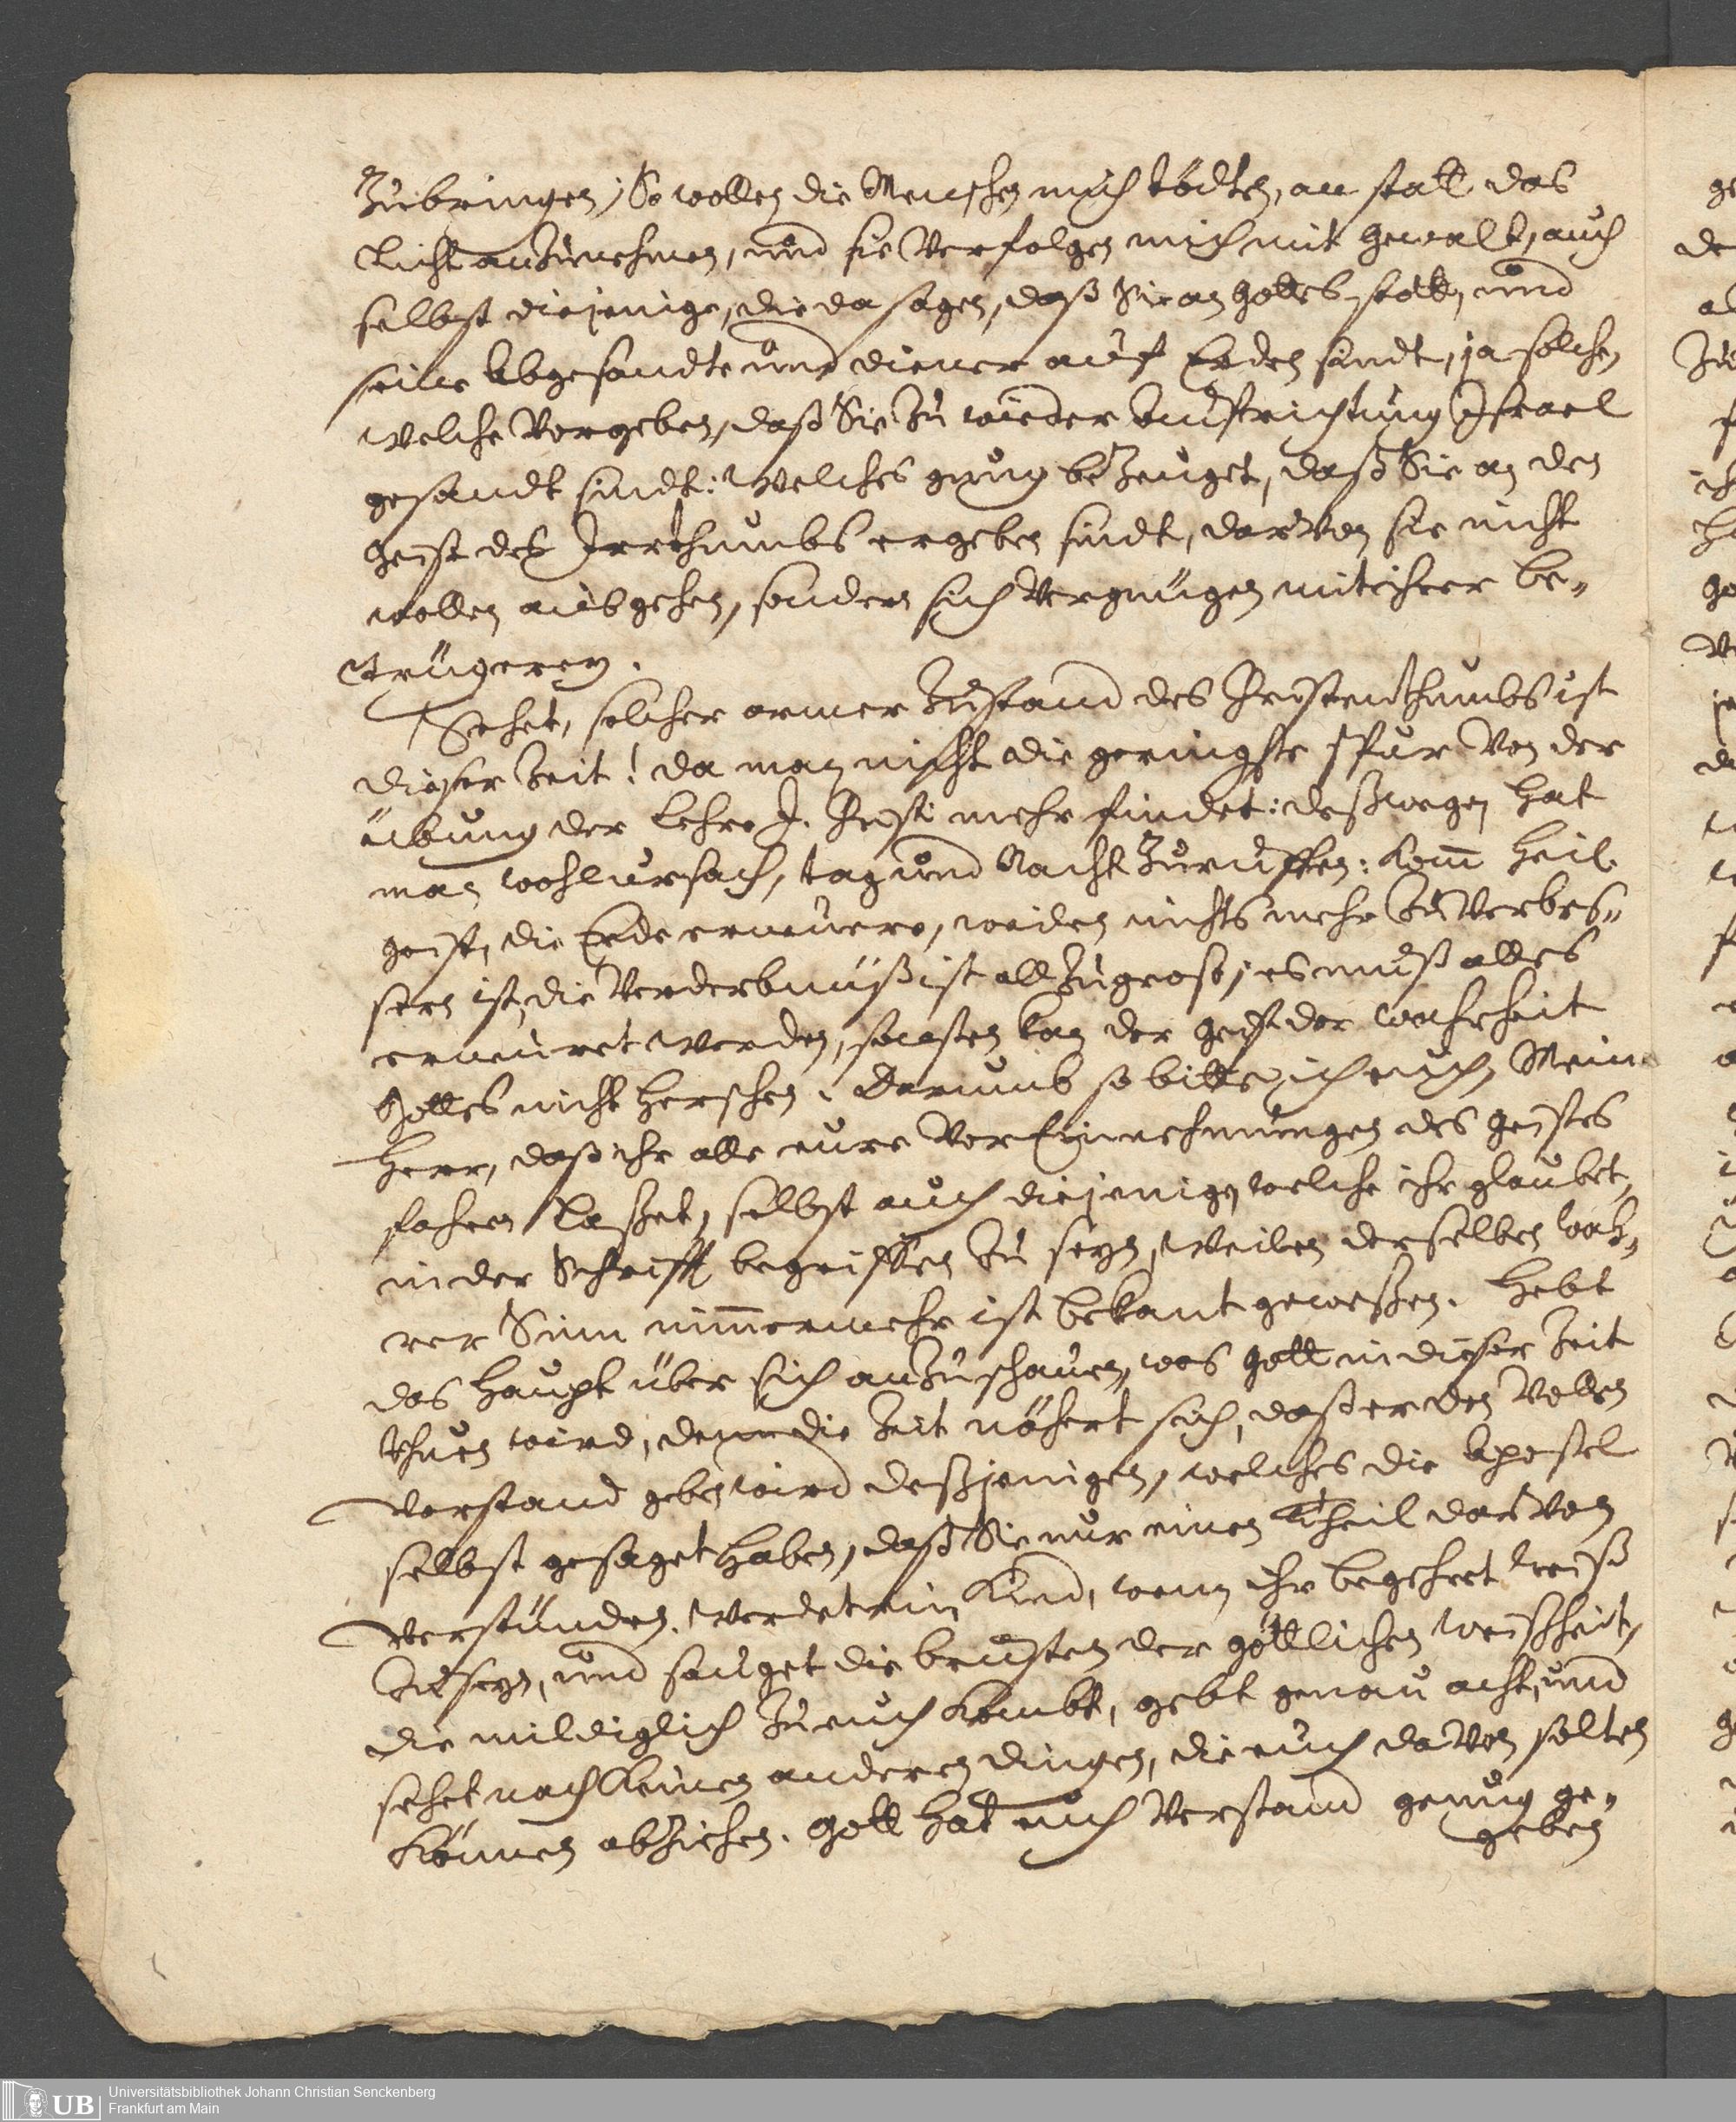 Zubringen; So wollen die Menschen mich tödten, an statt das
Licht anzunehmen, und sie Verfolgen mich mit gewalt, auch
selbst diejenige, die da sagen, daß Sie an Gottes statt, und
seine Abgesandte und diener auf Erden sindt, ja solche,
welche Vorgeben, daß Sie zu wieder Auffrichtung Israel
gesandt sindt: Welches gnug bezeuget, daß Sie an den
Geist des Irrthumbs ergeben sindt, darvon sie nicht
wollen ausgehen, sondern sich Vergnügen mit ihrer be„
trügerey.
Sehet, solcher armer Zustand des Christenthumbs ist
dieser Zeit! da man nicht die geringste spur Von der
übung der Lehre J. Christi mehr findet: deßwegen hat
man wohl ursach, tag und Nacht zuruffen: Kom̄ Heil.
Geist, die Erde erneuere, weilen nichts mehr zu Verbes„
sern ist, die Verderbnüß ist all zu gross; es muß alles
erneuret werden, sonsten kan der Geist der Wahrheit
Gottes nicht herschen. Darumb so bitte ich euch, Mein
Herr, daß ihr alle eure VorEinnehmungen des Geistes
fahren laßet, selbst auch diejenige, welche ihr glaubet,
in der Schrifft begriffen zu seyn, Weilen derselben wah„
rer Sinn nim̄ermehr ist bekant geweßen. Hebt
das Haupt über sich anzuschauen, was Gott in dieser Zeit
thuen wird, denn die Zeit nähert sich, daß er den Vollen
Verstand geben wird deßjenigen, welches die Apostel
selbst gesaget haben, daß Sie nur einen Theil darvon
Verstünden. Werdet ein Kind, wenn ihr begehret weiß
Zu seyn, und sauget die brüsten der göttlichen Weißheit,
die mildiglich zu euch kombt, gebt genau acht, und
sehet nach keinen anderen dingen, die euch davon solten
können abziehen. Gott hat euch Verstand genug ge„
geben
Universitätsbibliothek Johann Christian Senckenberg
Frankfurt am Main
UB